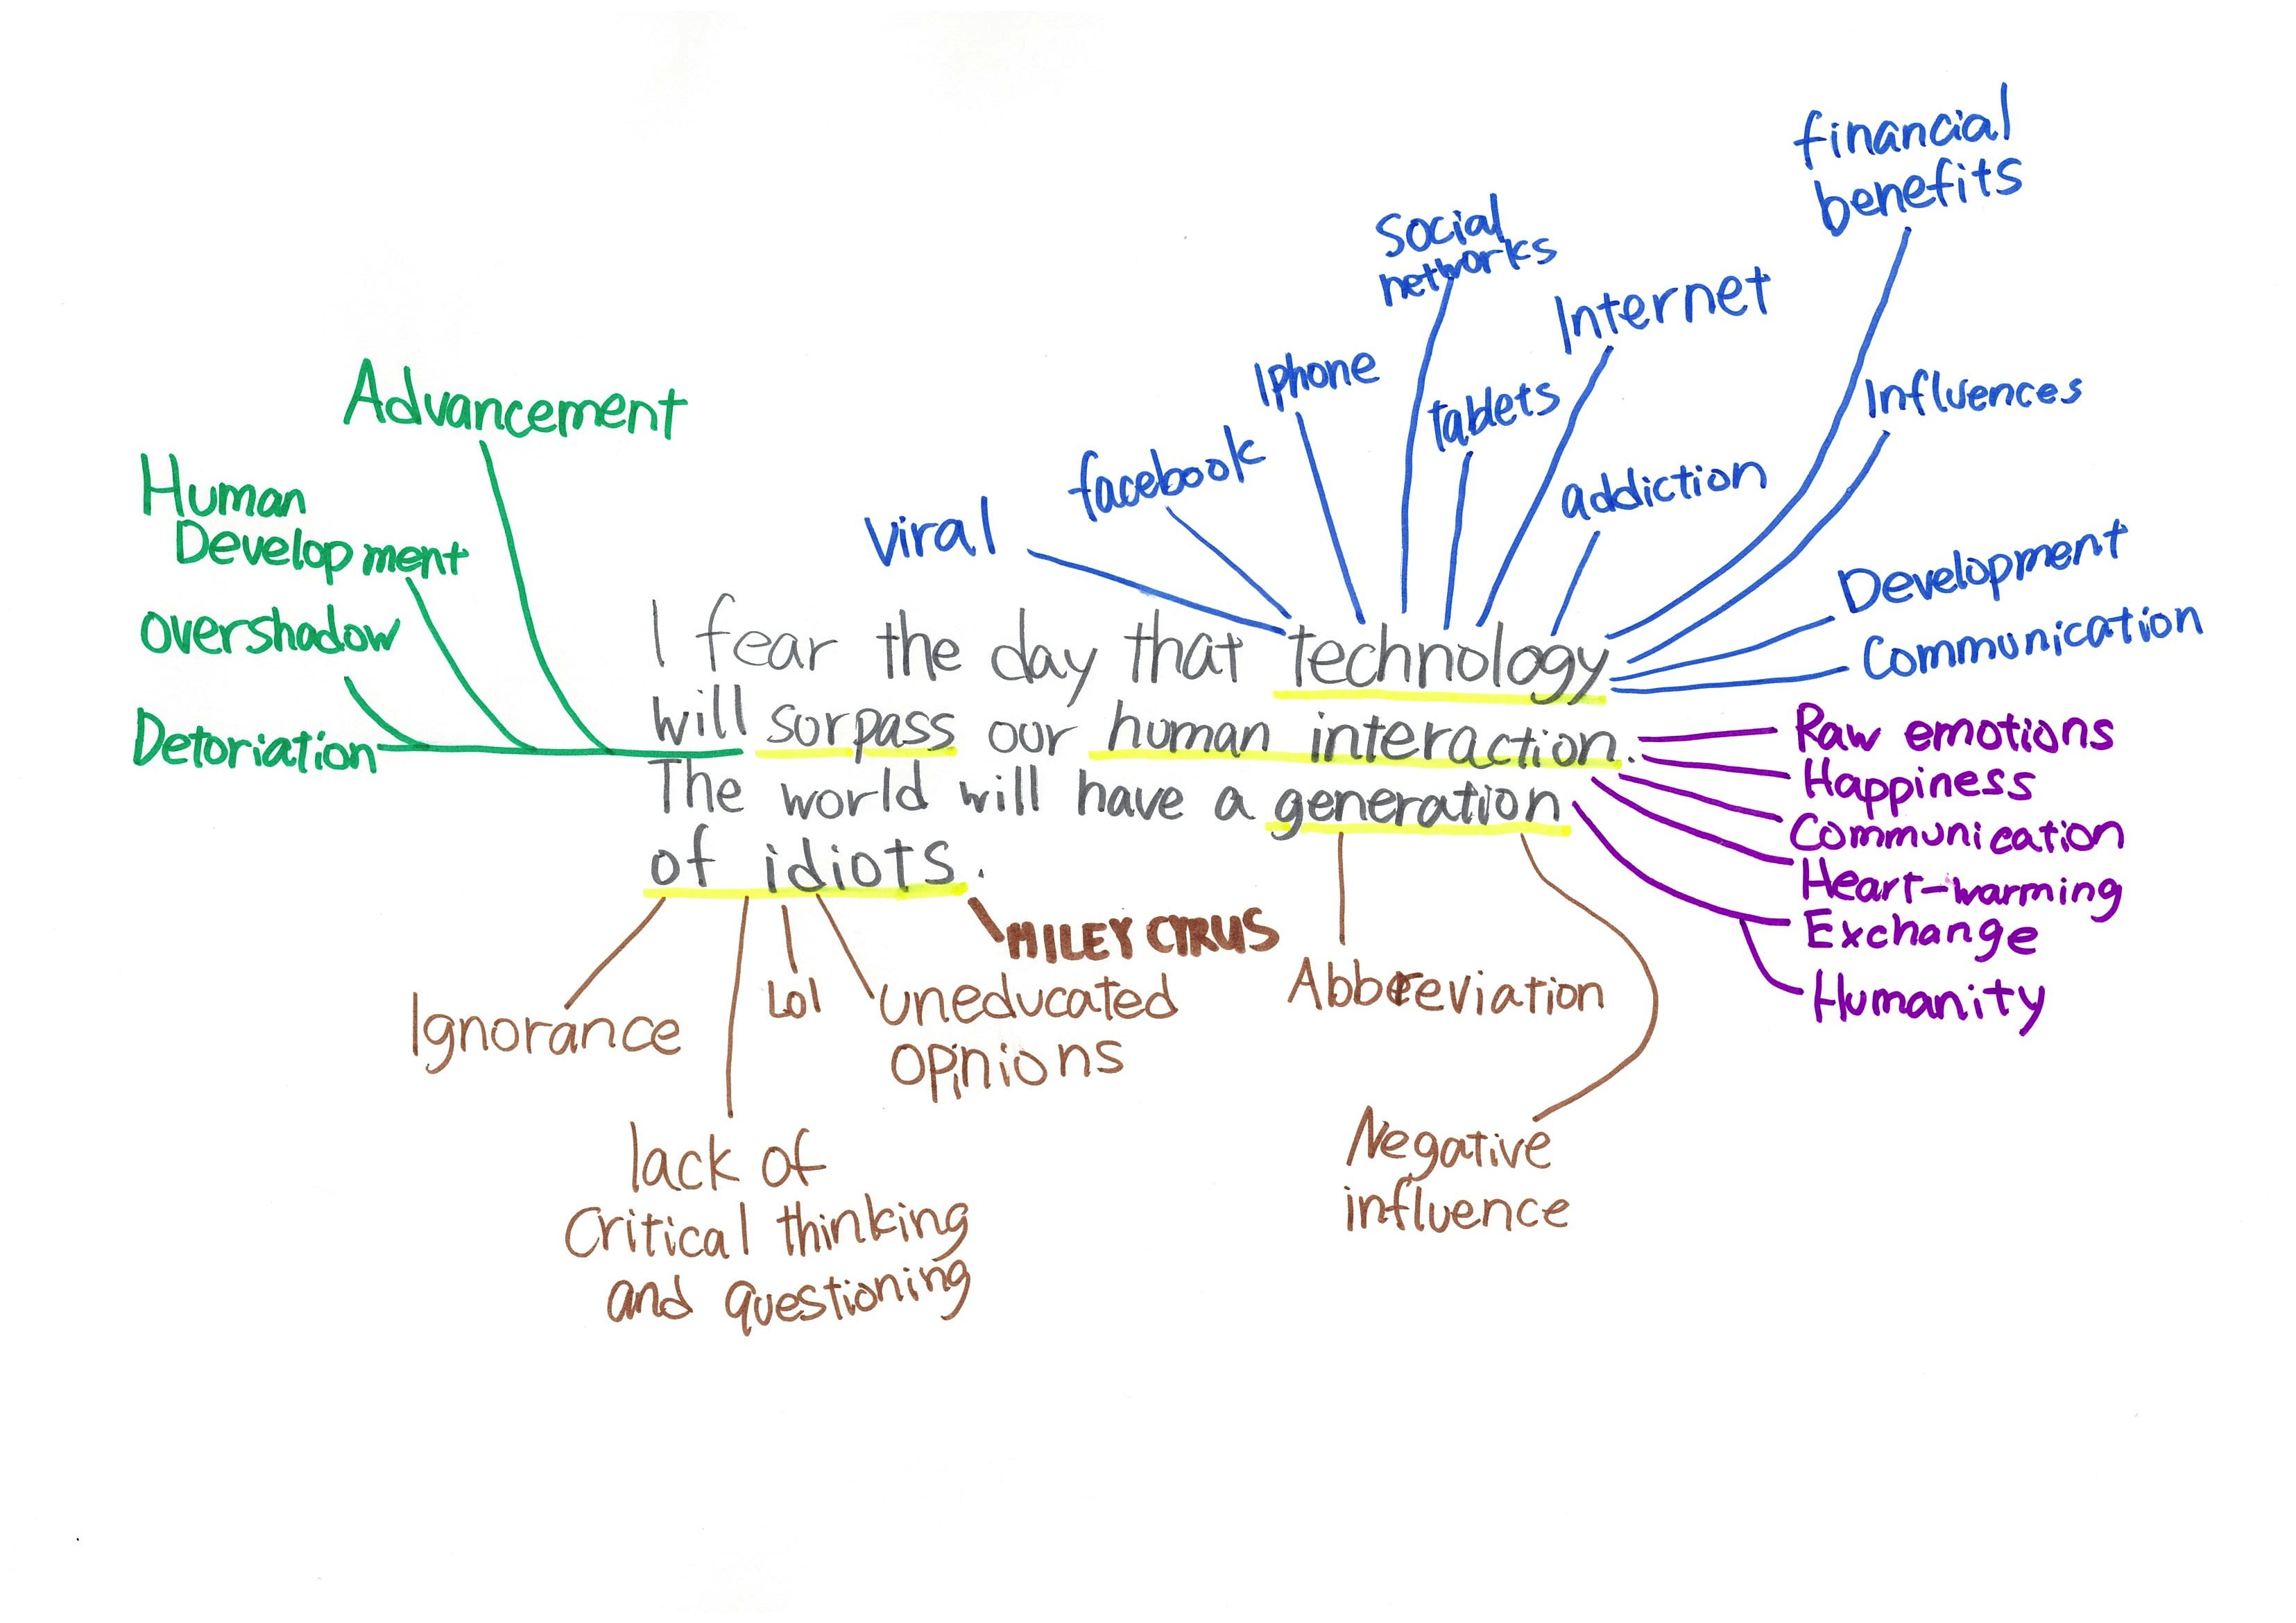 financial
benefits
social
networks
Internet
Iphone
tablets
Influences
facebook
addiction
viral
Development
Communication
Advancement
Human
Development
overshadow
Detoriation
I fear the day that technology
will surpass our human interaction.
The world will have a generation
of idiots.
Raw emotions
Happiness
Communication
Heart-warming
Exchange
Humanity
MILEY CYRUS
Ignorance
Lol
uneducated
opinions
Abbreviation
lack of
Critical thinking
and questioning
Negative
influence